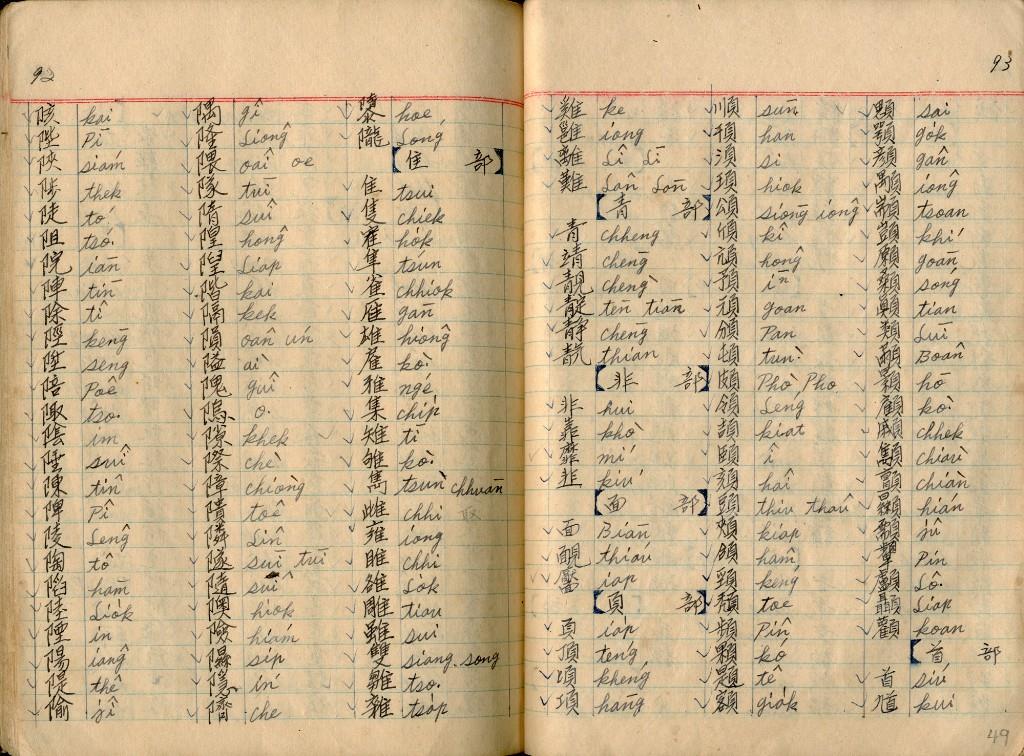 92
陔 kai
陛 Pī
陝 siám
陟 thek
徒 tó͘
阻 tsó͘
院 iān
陣 tīn
除 tî
陘 keng
陞 seng
陪 Poê
陬 tso͘
陰 im
陲 suî
陳 tîn
陴 Pî
陵 Lêng
陶 tô
陷 hām
陸 Lio̍k
陻 in
陽 iâng
隄 thê
隃 jî
隅 gî
隆 Liông
隈 oai oe
隊 tuī
隋 suî
隍 hông
隉 Liap
階 kai
隔 kek
隕 oān ún
隘 ài
隗 guî
隖 o͘
隙 khek
際 chè
障 chiong
隤 toê
隣 Lîn
隧 suī tuī
隨 suî
隩 hiok
險 hiám
隰 si̍p
隱 ín
隮 che
隳 hoe
隴 Lóng
【隹 部】
隹 tsui
隻 chiek
隺 ho̍k
隼 tsún
雀 chhiok
雁 gān
雄 hiông
雇 kò͘
雅 ngé
集 chi̍p
雉 tī
雊 kò͘
雋 tsùn chhuān
雌 chhi
雍 iong
雎 chhi
雒 Lo̍k
雕 tiau
雖 sui
雙 siang. song
雛 tso͘
雜 tsa̍p
93
雞 ke
雝 iong
離 Lî Lī
難 Lân Lān
【青 部】
青 chheng
靖 chēng
靚 chēng
靛 tēn tiān
静 chēng
靔 thian
【非 部】
非 hui
靠 khò
靡 mí
韭 kiú
【面 部】
面 Biān
靦 thián
靨 iap
【頁 部】
頁 ia̍p
頂 téng
頃 khéng
項 hāng
順 sūn
頇 han
須 si
頊 hiok
頌 siōng iông
頎 kî
頏 hông
預 ī
頑 goân
頒 Pan
頓 tùn
頗 Phò Pho
領 Léng
頡 kiat
頤 î
頦 hâi
頭 thiû thaû
頰 kiap
頷 hâm
頸 kéng
頹 toê
頻 Pîn
顆 kó
題 tê
額 gia̍k
顋 sai
顎 go̍k
顏 gân
顒 iông
顓 tsoan
顗 khí
願 goān
顙 sóng
顛 tian
類 Luī
顢 Boân
顥 hō
顧 kò͘
顣 chhek
顦 chiau
顫 chiàn
顯 hián
顬 jû
顰 Pîn
顱 Lô͘
顳 Liap
顴 koân
【首 部】
首 siú
馗 kuî
49